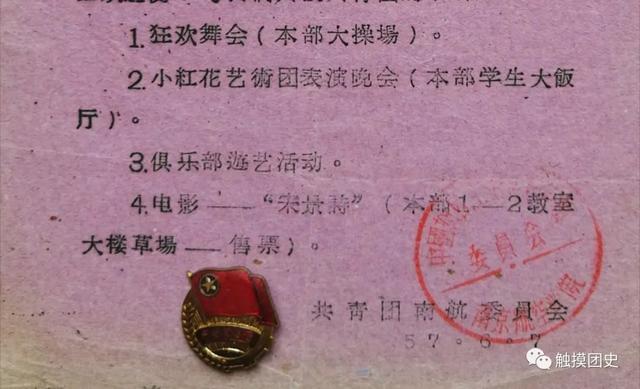 1.狂欢舞会（本部大操場）。
2.小紅花艺術团表演晚会（本部学生大飯
厅）。
3.俱乐部遊艺活动。
4.电影——“宋景詩”（本部1—2教室
大楼草場——售票）。
委員会
共青团南航委員会
57.6.7
触摸团史